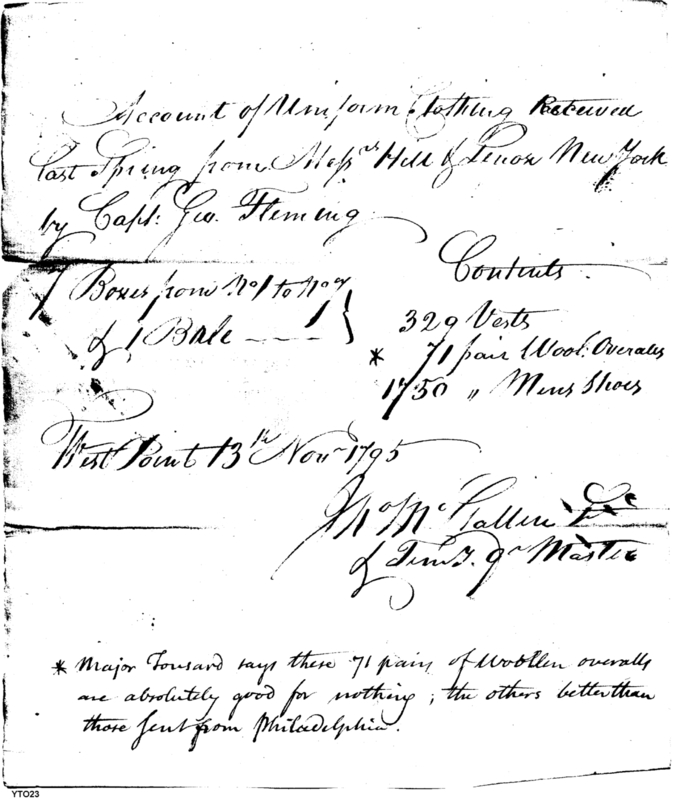 Account of Uniform Clothing Received
last Spring from Messrs Hill & Lenox New York
by Capt: Geo. Fleming
Contents
7 Boxes from No 1 to No 7
& 1 Bale ---- 1 }
329 Vests
* 71 pair Wool: Overalls
1750 " Mens Shoes
West Point 13th Novr 1795
Jno Mc Gallin
& Temy. Qr Master
* Major Tousard says these 71 pairs of woollen overalls
are absolutely good for nothing; the others better than
those sent from Philadelphia.
YTO23